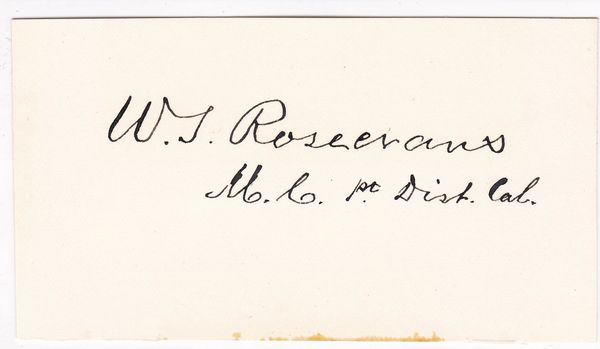 W. S. Rosecrans
M. C. 1st Dist. Cal.